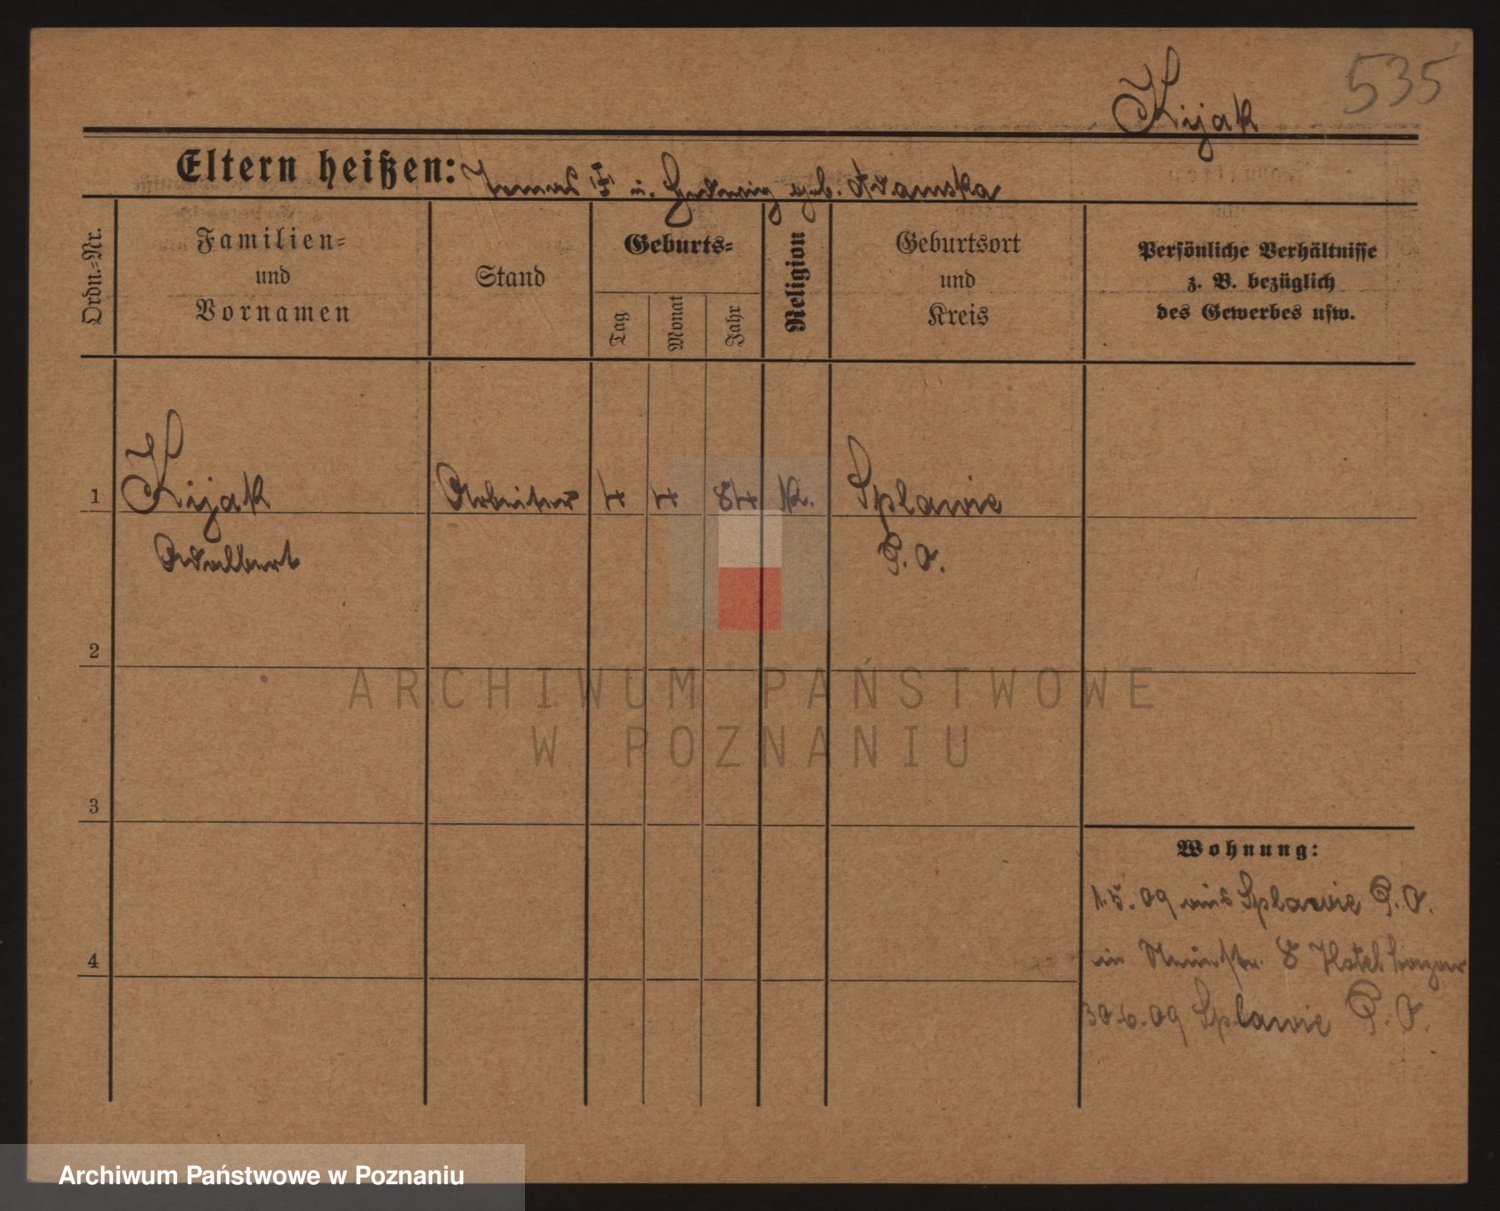 535
Kijak
Eltern heißen: Tomas u. Hedwig geb. Adamska
Ordn.-Nr.
Familien-
und
Vornamen
Stand
Geburts-
Tag
Monat
Jahr
Religion
Geburtsort
und
Kreis
Persönliche Verhältnisse
z. B. bezüglich
des Gewerbes usw.
1 Kijak Arbeiter 4 4 84 k. Splawie
Adalbert P. O.
2
ARCHIWUM PAŃSTWOWE
W POZNANIU
3
Wohnung:
1.5.09 aus Splawie P. O.
4
in 8 Hotel
30.6.09 Splawie P. O.
Archiwum Państwowe w Poznaniu